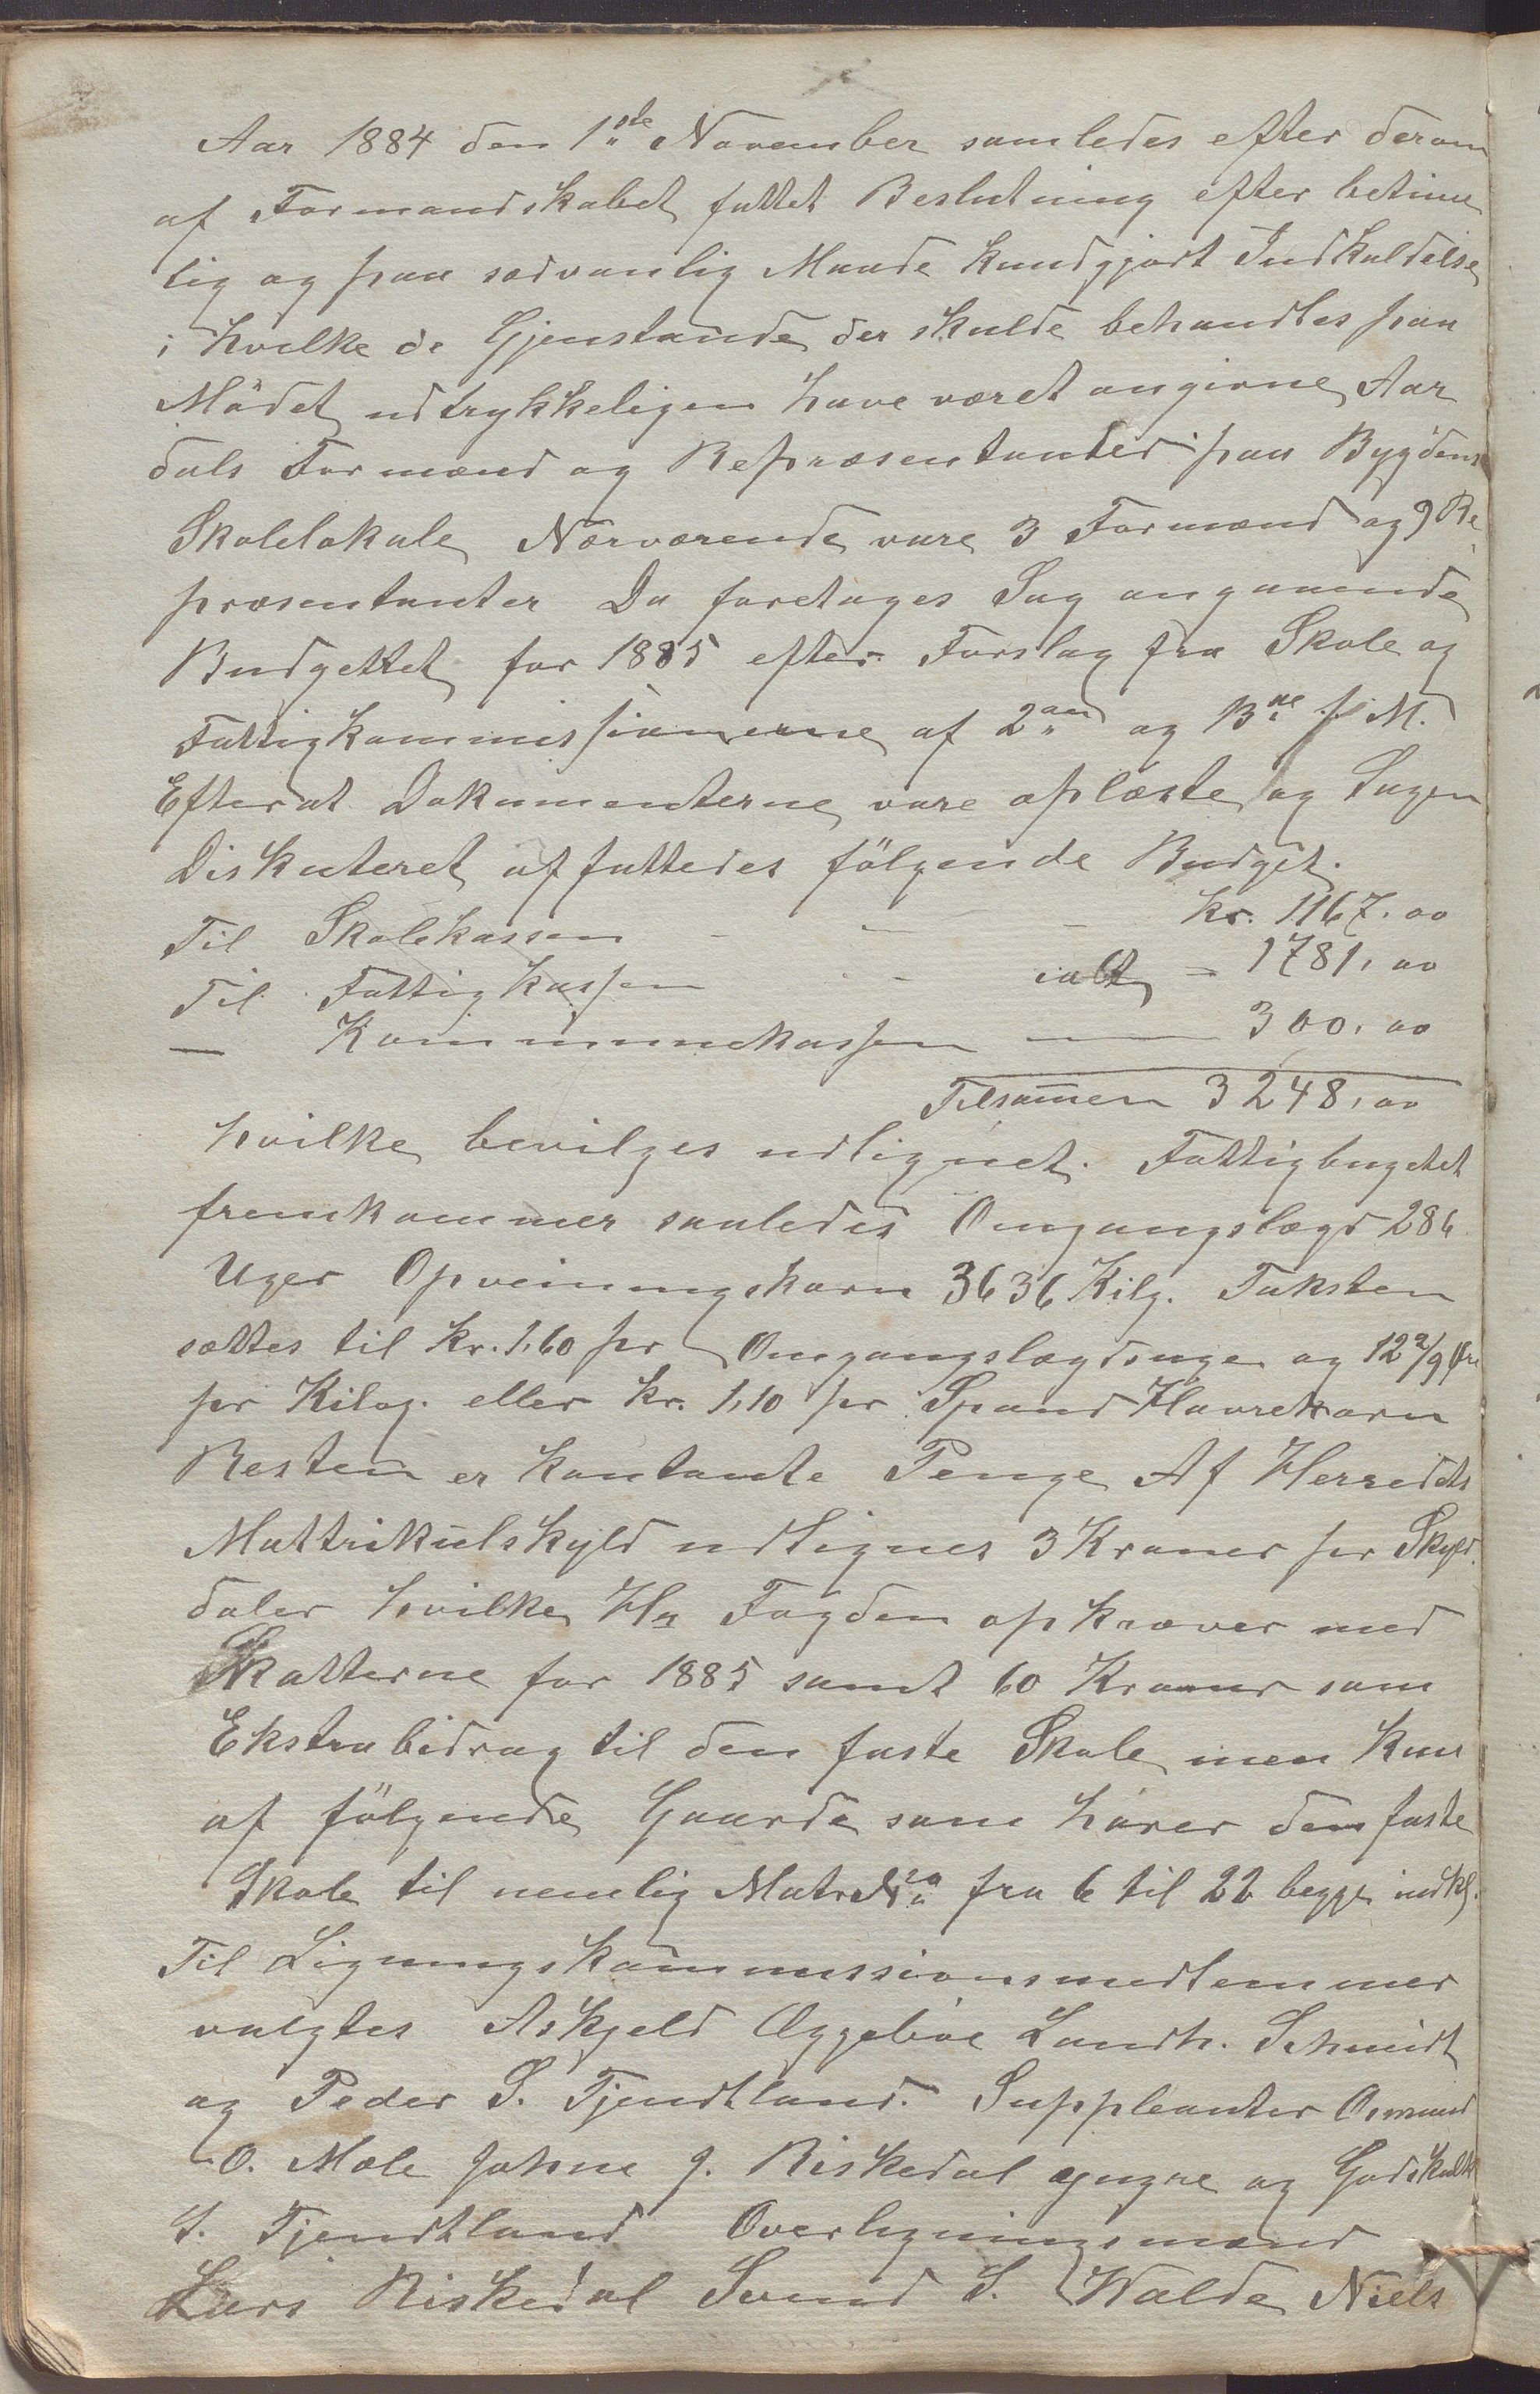 Aar 1884 den 1ste November samledes efter derom
af Formandskabet fattet Beslutning efter betime
lig og paa sædvanlig Maade kundgjort Indkaldelse
i hvilke de Gjenstande der skulde behandles paa
Mödet udtrykkeligen have været angivne Aar
dals Formænd og Repræsentanter paa Bygdens
Skolelokale Nærværende vare 3 Formænd og 9 Re
præsentanter Da foretages Sag angaaende
Budgettet for 1885 efter Forslag fra Skole og
Fattigkommissionerne af 2den og 13ne f. M.
Efterat Dokumenterne vare oplæste og Sagen
Diskuteret affattedes fölgende Budget.
Til Skolekassen - - - kr. 1167.00
Til Fattigkassen - ialt = 1781,00
— Kommunekassen — 300,00
Tilsammen 3248,00
hvilke bevilges udlignet. Fattigbugetet
fremkommer saaledes Omgangslægd 286
Uger Opveiningskorn 3636 Kilg. Taksten
sættes til kr. 1,60 pr Omgangslægdsuge og 12 2/9 Øre
pr Kilog. eller kr. 1,10 pr Spand Havrekorn
Resten er kontante Penge Af Herredets
Mattrikulskyld udlignes 3 Kroner pr Skyld
daler hvilke Hr Fogden opkræver med
Skatterne for 1885 samt 60 Kroner som
Ekstrabidrag til den faste Skole men kun
af fölgende Gaarde som hører den faste
Skole til nemlig Matr No fra 6 til 22 begge indkl.
Til Ligningskommissionsmedlemmer
valgtes Askjeld Eggebøe Landh. Schmidt
og Peder S. Tjendtland. Suppleanter Osmund
O. Mæle Johne J. Riskedal yngre og Godskalk
T. Tjendtland Overligningsmænd
Lars Riskedal Svend S. Walde Niels